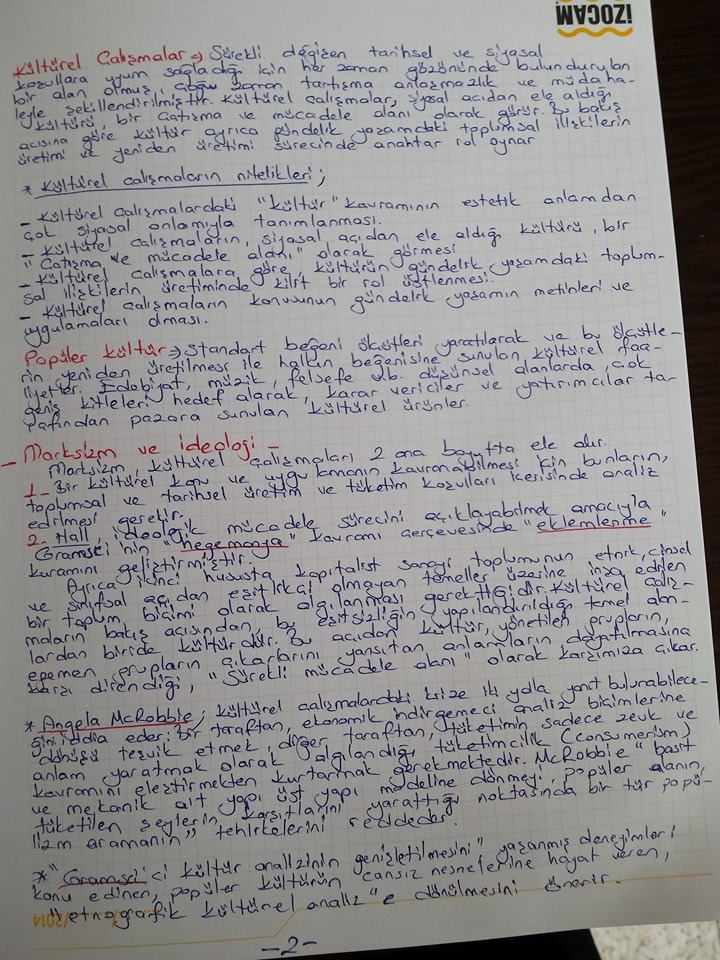 İZOCAM
Kültürel Çalışmalar => Sürekli değişen tarihsel ve siyasal
koşullara uyum sağladığı için her zaman gözönünde bulundurulan
bir alan olmuş, çoğu zaman tartışma anlaşmazlık ve müdaha-
leyle şekillendirilmiştir. Kültürel çalışmalar, siyasal açıdan ele aldığı
kültürü, bir çatışma ve mücadele alanı olarak görür. Bu bakış
açısına göre kültür ayrıca gündelik yaşamdaki toplumsal ilişkilerin
üretimi ve yeniden üretimi sürecinde anahtar rol oynar
* Kültürel çalışmaların nitelikleri;
- Kültürel çalışmalardaki "kültür" kavramının estetik anlamdan
çok siyasal anlamıyla tanımlanması.
- Kültürel çalışmaların, siyasal açıdan ele aldığı kültürü, bir
"Çatışma ve mücadele alanı" olarak görmesi
- Kültürel çalışmalara göre, kültürün gündelik yaşamdaki toplum-
sal ilişkilerin üretiminde kilit bir rol üstlenmesi.
- Kültürel çalışmaların konusunun gündelik yaşamın metinleri ve
uygulamaları olması.
Popüler kültür => Standart beğeni ölçütleri yaratılarak ve bu ölçütle-
rin yeniden üretilmesi ile halkın beğenisine sunulan kültürel faa-
liyetler. Edebiyat, müzik, felsefe v.b. düşünsel alanlarda, çok
geniş kitleleri hedef alarak, karar vericiler ve yatırımcılar ta-
rafından pazara sunulan kültürel ürünler.
- Marksizm ve ideoloji -
Marksizm, kültürel çalışmaları 2 ana boyutta ele alır.
1- Bir kültürel konu ve uygulamanın kavranabilmesi için bunların,
toplumsal ve tarihsel üretim ve tüketim koşulları içerisinde analiz
edilmesi gerekir.
2- Hall, ideolojik mücadele sürecini açıklayabilmek amacıyla
Gramsci'nin "hegemonya" kavramı çerçevesinde "eklemlenme"
kuramını geliştirmiştir.
Ayrıca ikinci hususta kapitalist sanayi toplumunun etnik, cinsel
ve sınıfsal açıdan eşitlikçi olmayan temeller üzerine inşa edilen
bir toplum biçimi olarak algılanması gerektiğidir. Kültürel çalış-
maların bakış açısından, bu eşitsizliğin yapılandırıldığı temel alan-
lardan biride kültürdür. Bu açıdan kültür, yönetilen grupların,
egemen grupların çıkarlarını yansıtan anlamların dayatılmasına
karşı direndiği, "Sürekli mücadele alanı" olarak karşımıza çıkar.
* Angela McRobbie; kültürel çalışmalardaki krize iki yolla yanıt bulunabilece-
ğini iddia eder: bir taraftan, ekonomik indirgemeci analiz biçimlerine
dönüşü teşvik etmek, diğer taraftan, tüketimin sadece zevk ve
anlam yaratmak olarak algılandığı tüketimcilik (consumerism)
kavramını eleştirmekten kurtarmak gerekmektedir. McRobbie "basit
ve mekanik alt yapı üst yapı modeline dönmeyi, popüler olanın,
tüketilen şeylerin karşıtlarını yarattığı noktasında bir tür popü-
lizm aramanın" tehlikelerini reddeder.
* "Gramsci'ci kültür analizinin genişletilmesini" yaşanmış deneyimleri
konu edinen, popüler kültürün cansız nesnelerine hayat veren,
"etnografik kültürel analiz"e dönülmesini önerir.
-2-